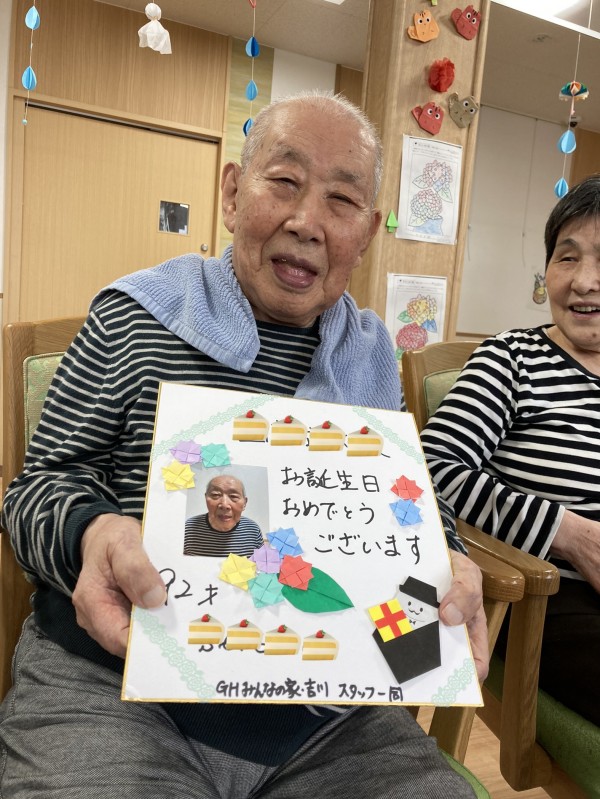 お誕生日
おめでとう
ございます
92才
GHみんなの家・吉川 スタッフ一同